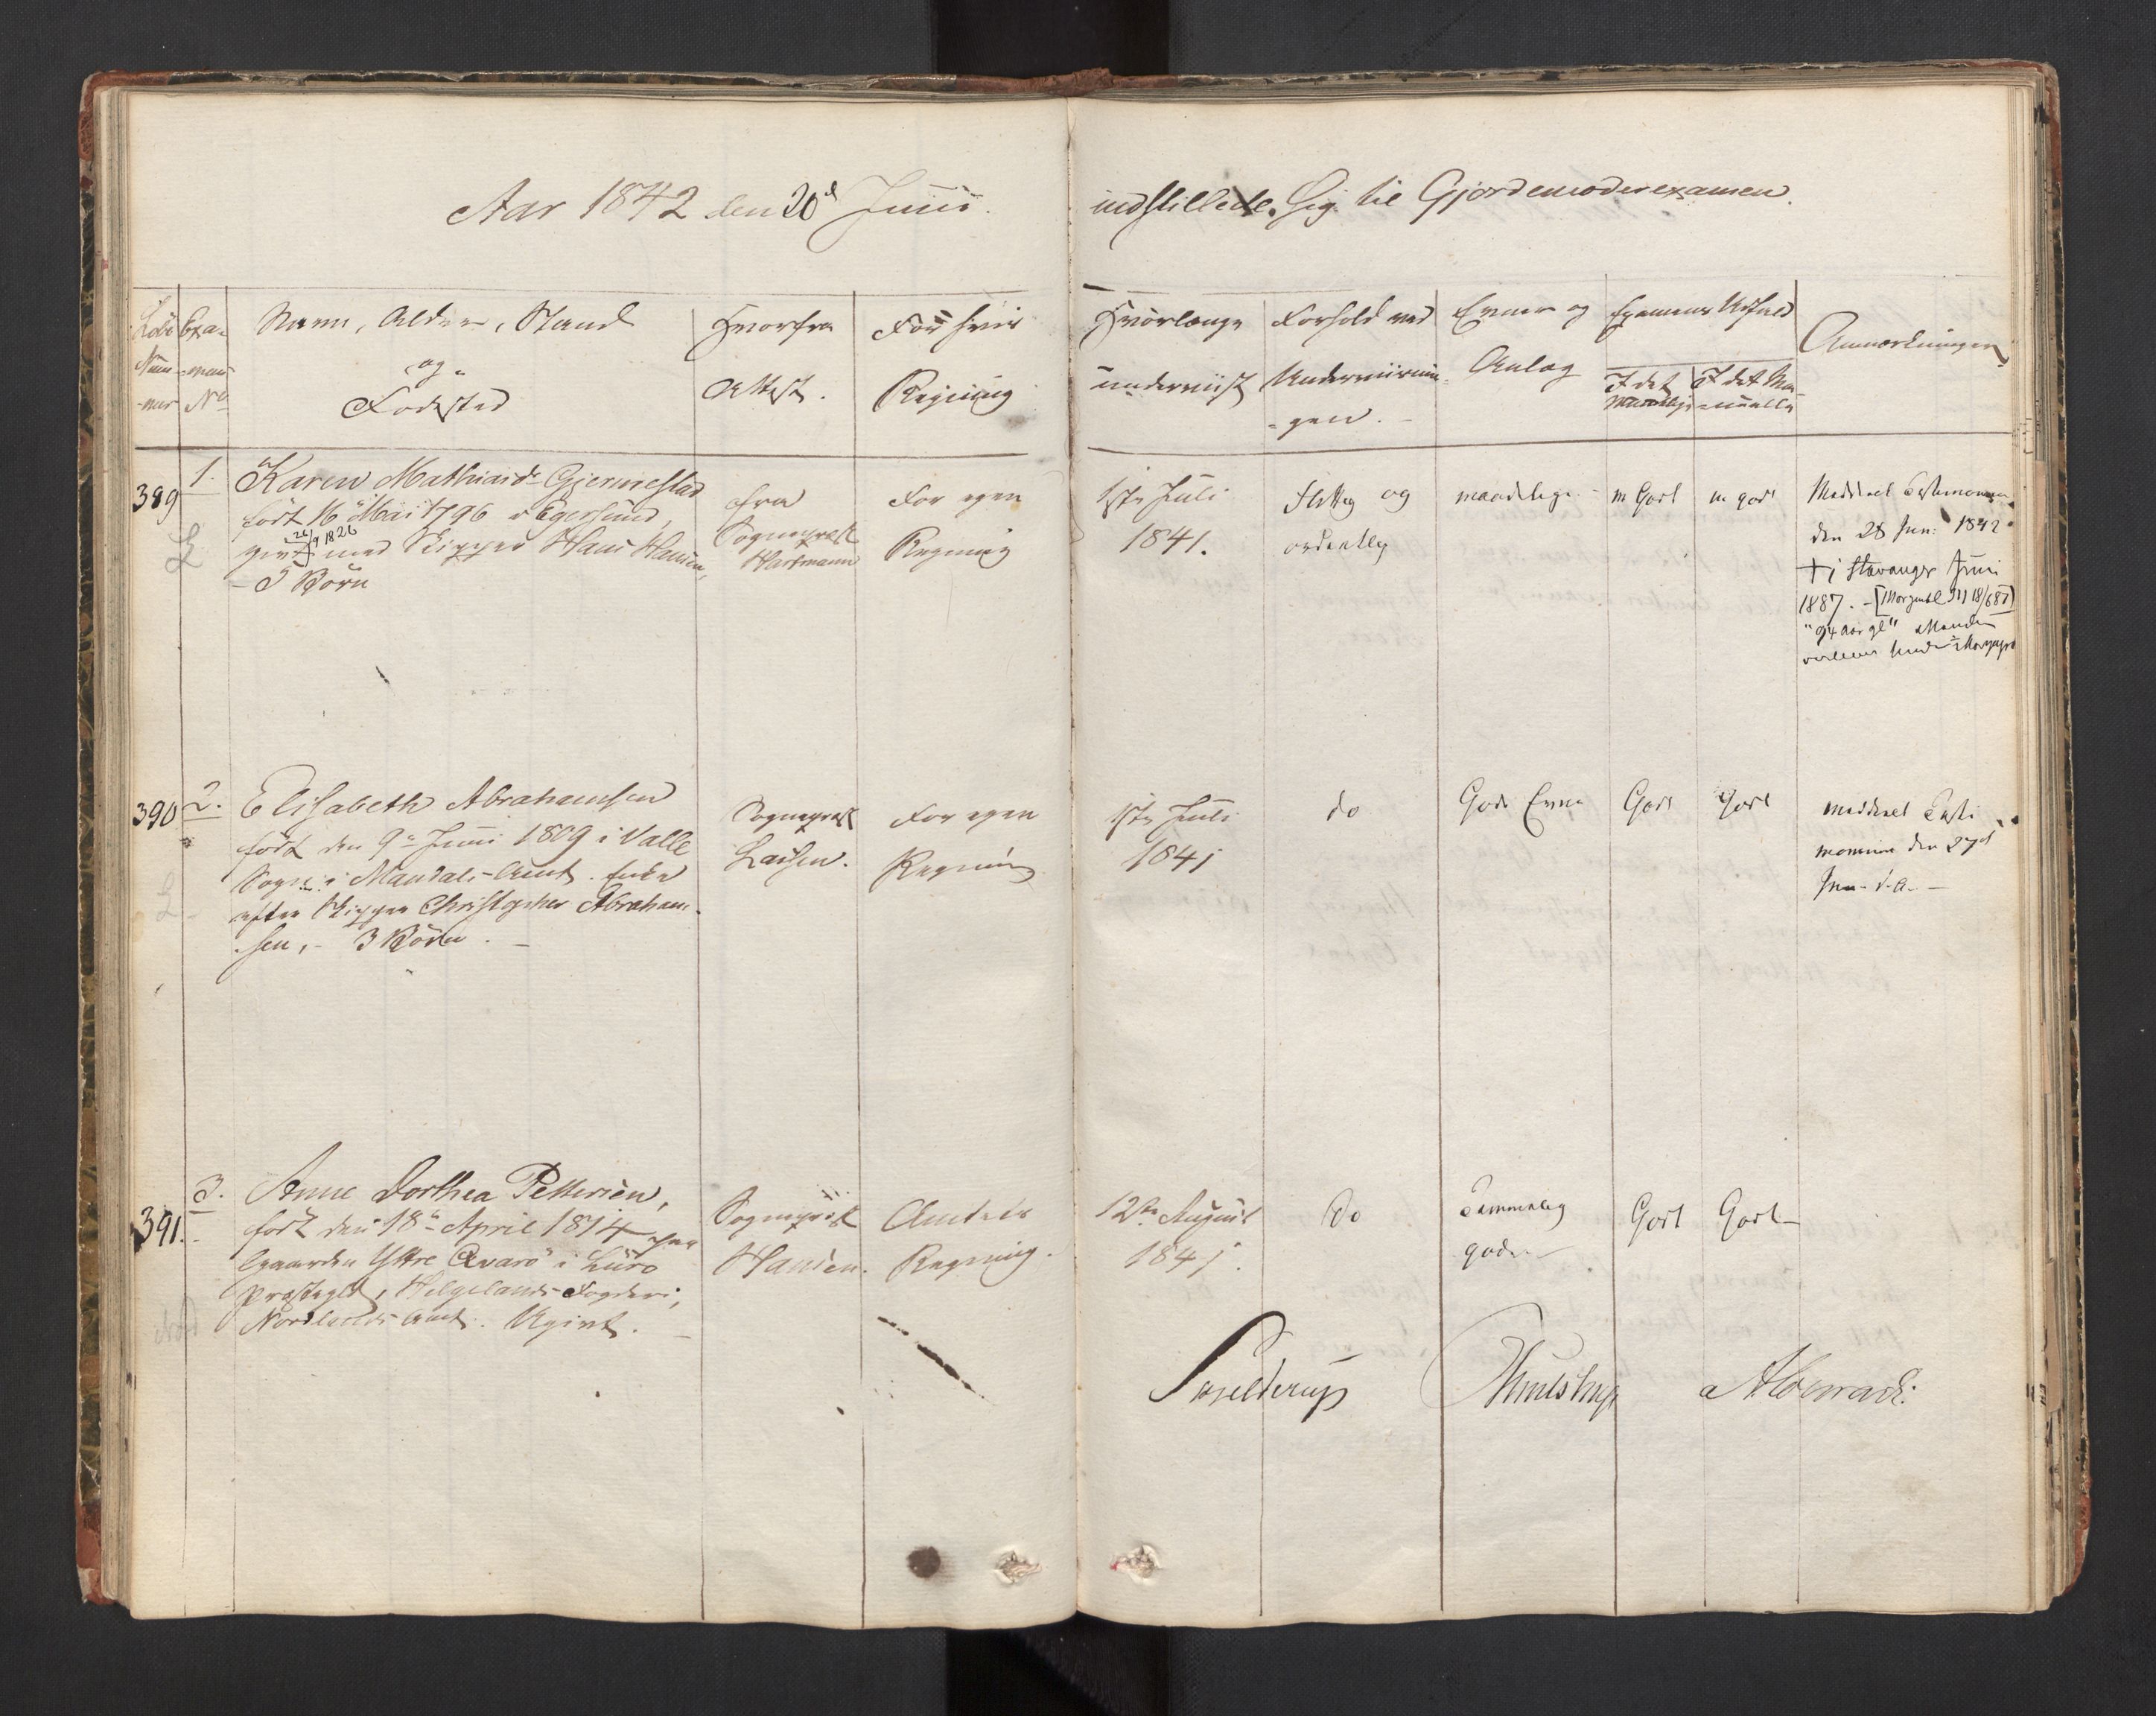 Aar 1842 den 20d Junii. indstillede Sig til Gjordemoderexamen.
Løbe Nummer
Examens No
Navn, Alder, Stand
og
Fødested
Hvorfra
Attest.
For hvis
Regning
Hvorlænge
underviist
Forhold ved
Underviisnin-
gen.
Evner og
Anlæg
Examens Udfald
I det
I det Ma-
nuelle
Anmærkninger
389
1.
Karen Mathiasdr Gjermestad
født 16 Mai 1796 i Egersund,
26/9 1826
givt med Skipper Hans Hansen,
- 5 Børn
fra
Sognepræst
Hartmann
For egen
Regning
1ste Juli
1841.
Flittig og
ordentlig
maadelige
m Godt
m godt
Meddelt Testimonium
den 28 Jun: 1842
† i Stavanger Juni
1887. - [Morgenbl 18/6 87]
"94 aar gl"
390
2.
Elisabeth Abrahamsen
født den 9de Juni 1809 i Valle
Sogn i Mandals-Amt. Enke
efter Skipper Christopher Abraham-
sen, - 3 Børn. -
Sognepræst
Lassen.
For egen
Regning
1ste Juli
1841
do
Gode Evner
Godt
Godt
meddelt Testi
monium den 27d
Jun. d. A. -
391.
3.
Anne Dorthea Pettersen,
født den 18de April 1814 paa
Gaarden Yttre Qvarø i Lurø
Præstegld, Helgelands Fogderi,
Nordlands Amt. Ugivt. -
Sognepræst
Hansen.
Amtets
Regning.
12te August
1841.
Do
Temmelig
gode
Godt
Godt
Skjelderup
Thulstrup
AConradi.